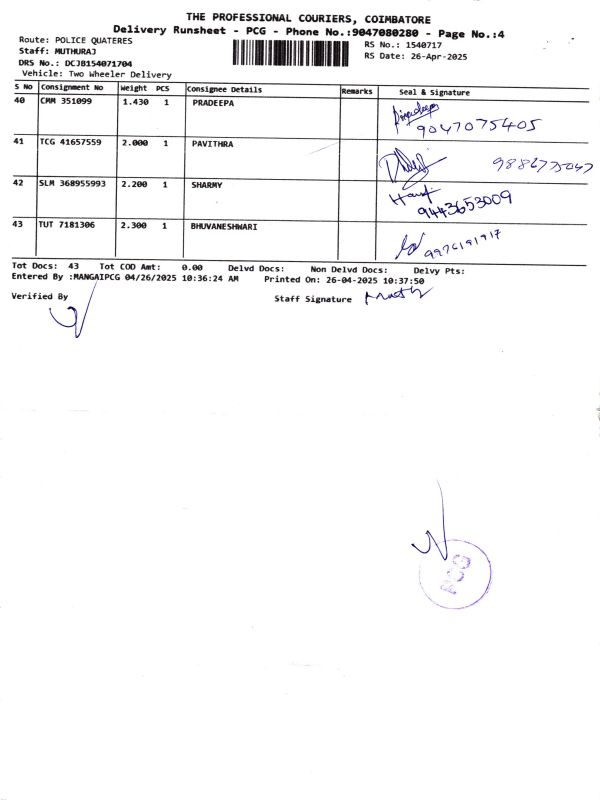 THE PROFESSIONAL COURIERS, COIMBATORE
Delivery Runsheet - PCG - Phone No.:9047080280 - Page No.:4
Route: POLICE QUATERES
RS No.: 1540717
Staff: MUTHURAJ
RS Date: 26-Apr-2025
DRS No.: DCJB154071704
Vehicle: Two Wheeler Delivery
S No Consignment No Weight PCS Consignee Details Remarks Seal & Signature
40 CMM 351099 1.430 1 PRADEEPA
Pradeepa
9047075405
41 TCG 41657559 2.000 1 PAVITHRA
42 SLM 368955993 2.200 1 SHARMY
9443653009
43 TUT 7181306 2.300 1 BHUVANESHWARI
9976191917
Tot Docs: 43 Tot COD Amt: 0.00 Delvd Docs: Non Delvd Docs: Delvy Pts:
Entered By :MANGAIPCG 04/26/2025 10:36:24 AM Printed On: 26-04-2025 10:37:50
Verified By
Staff Signature
PCG